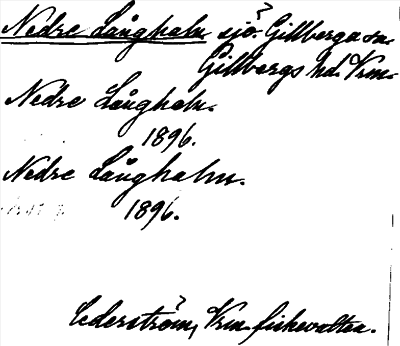 Nedre Långhalm sjö? Gillberga sn.
Gillbergs hd. Vrm.
Nedre Långhalm.
1896.
Nedre Långhalm.
1896.
Cederström, Vrm. fiskevatten.